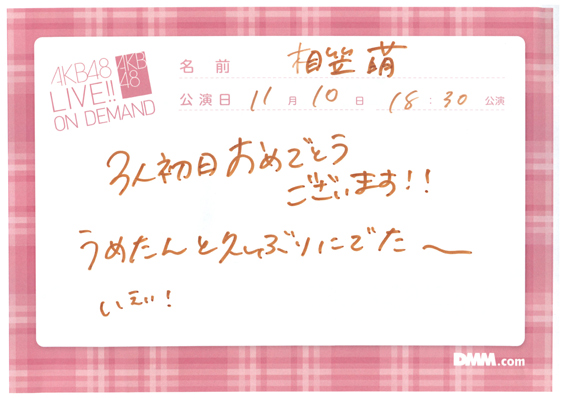 AKB48
LIVE!!
ON DEMAND
AKB
48
名前 相笠 萌
公演日 11月10日 18:30公演
3人初日おめでとう
ございます!!
うめたんと久しぶりにでた〜
いえい!
DMM.com